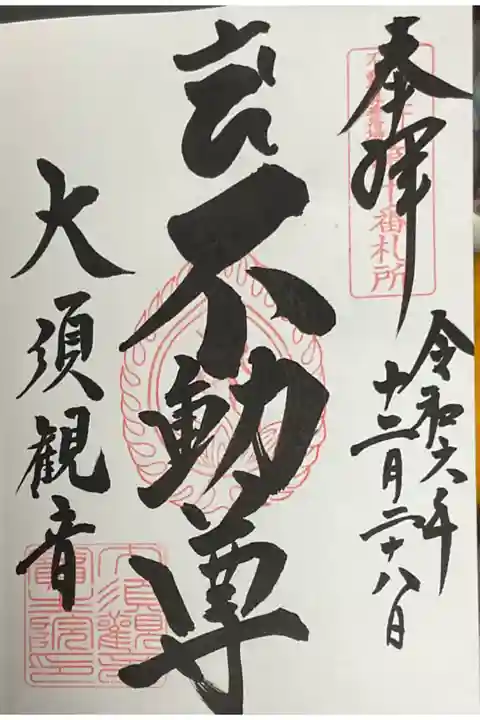 奉拝
十番札所
令和六年
十二月二十八日
不動尊
大須観音